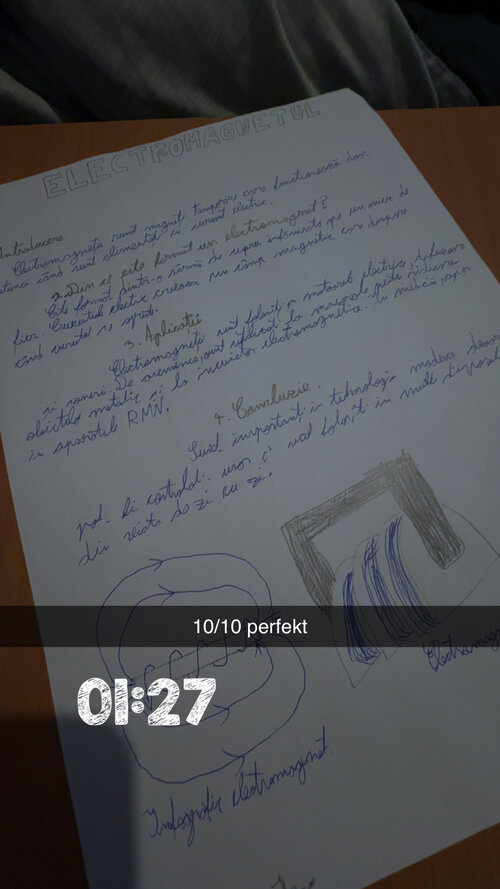 ELECTROMAGNETUL
Introducere
Electromagneții sunt magneți temporari care funcționează doar
atunci când sunt alimentați cu curent electric.
2. Din ce este format un electromagnet?
Este format dintr-o sârmă de cupru înfășurată pe un miez de
fier. Curentul electric creează un câmp magnetic care dispare
când curentul se oprește.
3. Aplicații
Electromagneții sunt folosiți in motoarele electrice, difuzoare
și sonerii. De asemenea, sunt utilizați la macarale pentru ridicarea
obiectelor metalice și la încuietori electromagnetice. In medicină, apar
in aparatele RMN.
4. Concluzie.
Sunt importanți in tehnologia modernă, deoarece
pot fi controlați ușor și sunt folosiți in multe dispozitive
din viața de zi cu zi.
10/10 perfekt
01:27
Infografic electromagnet.